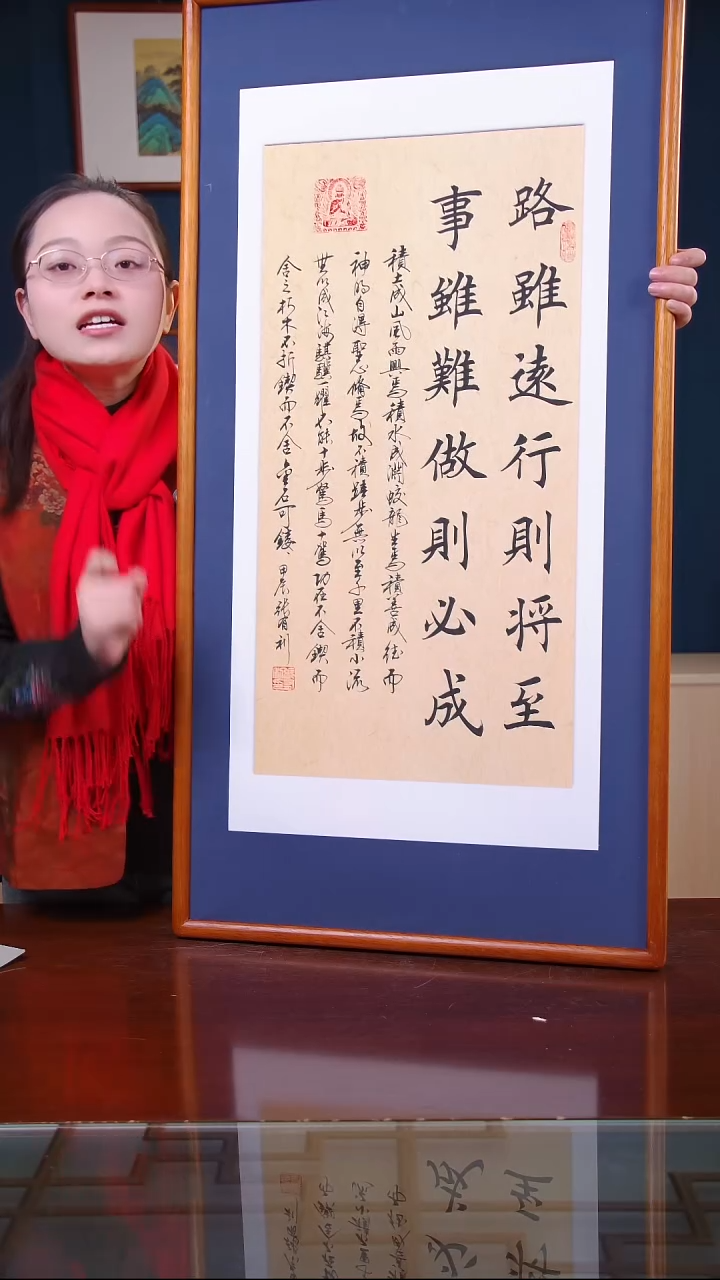 路雖遠行則将至
事雖難做則必成
積土成山風雨興焉積水成淵蛟龍生焉積善成德而
神明自得聖心備焉故不積蹞步無以至千里不積小流
無以成江海騏驥一躍不能十步駑馬十駕功在不舍鍥而
舍之朽木不折鍥而不舍金石可鏤
甲辰張有利